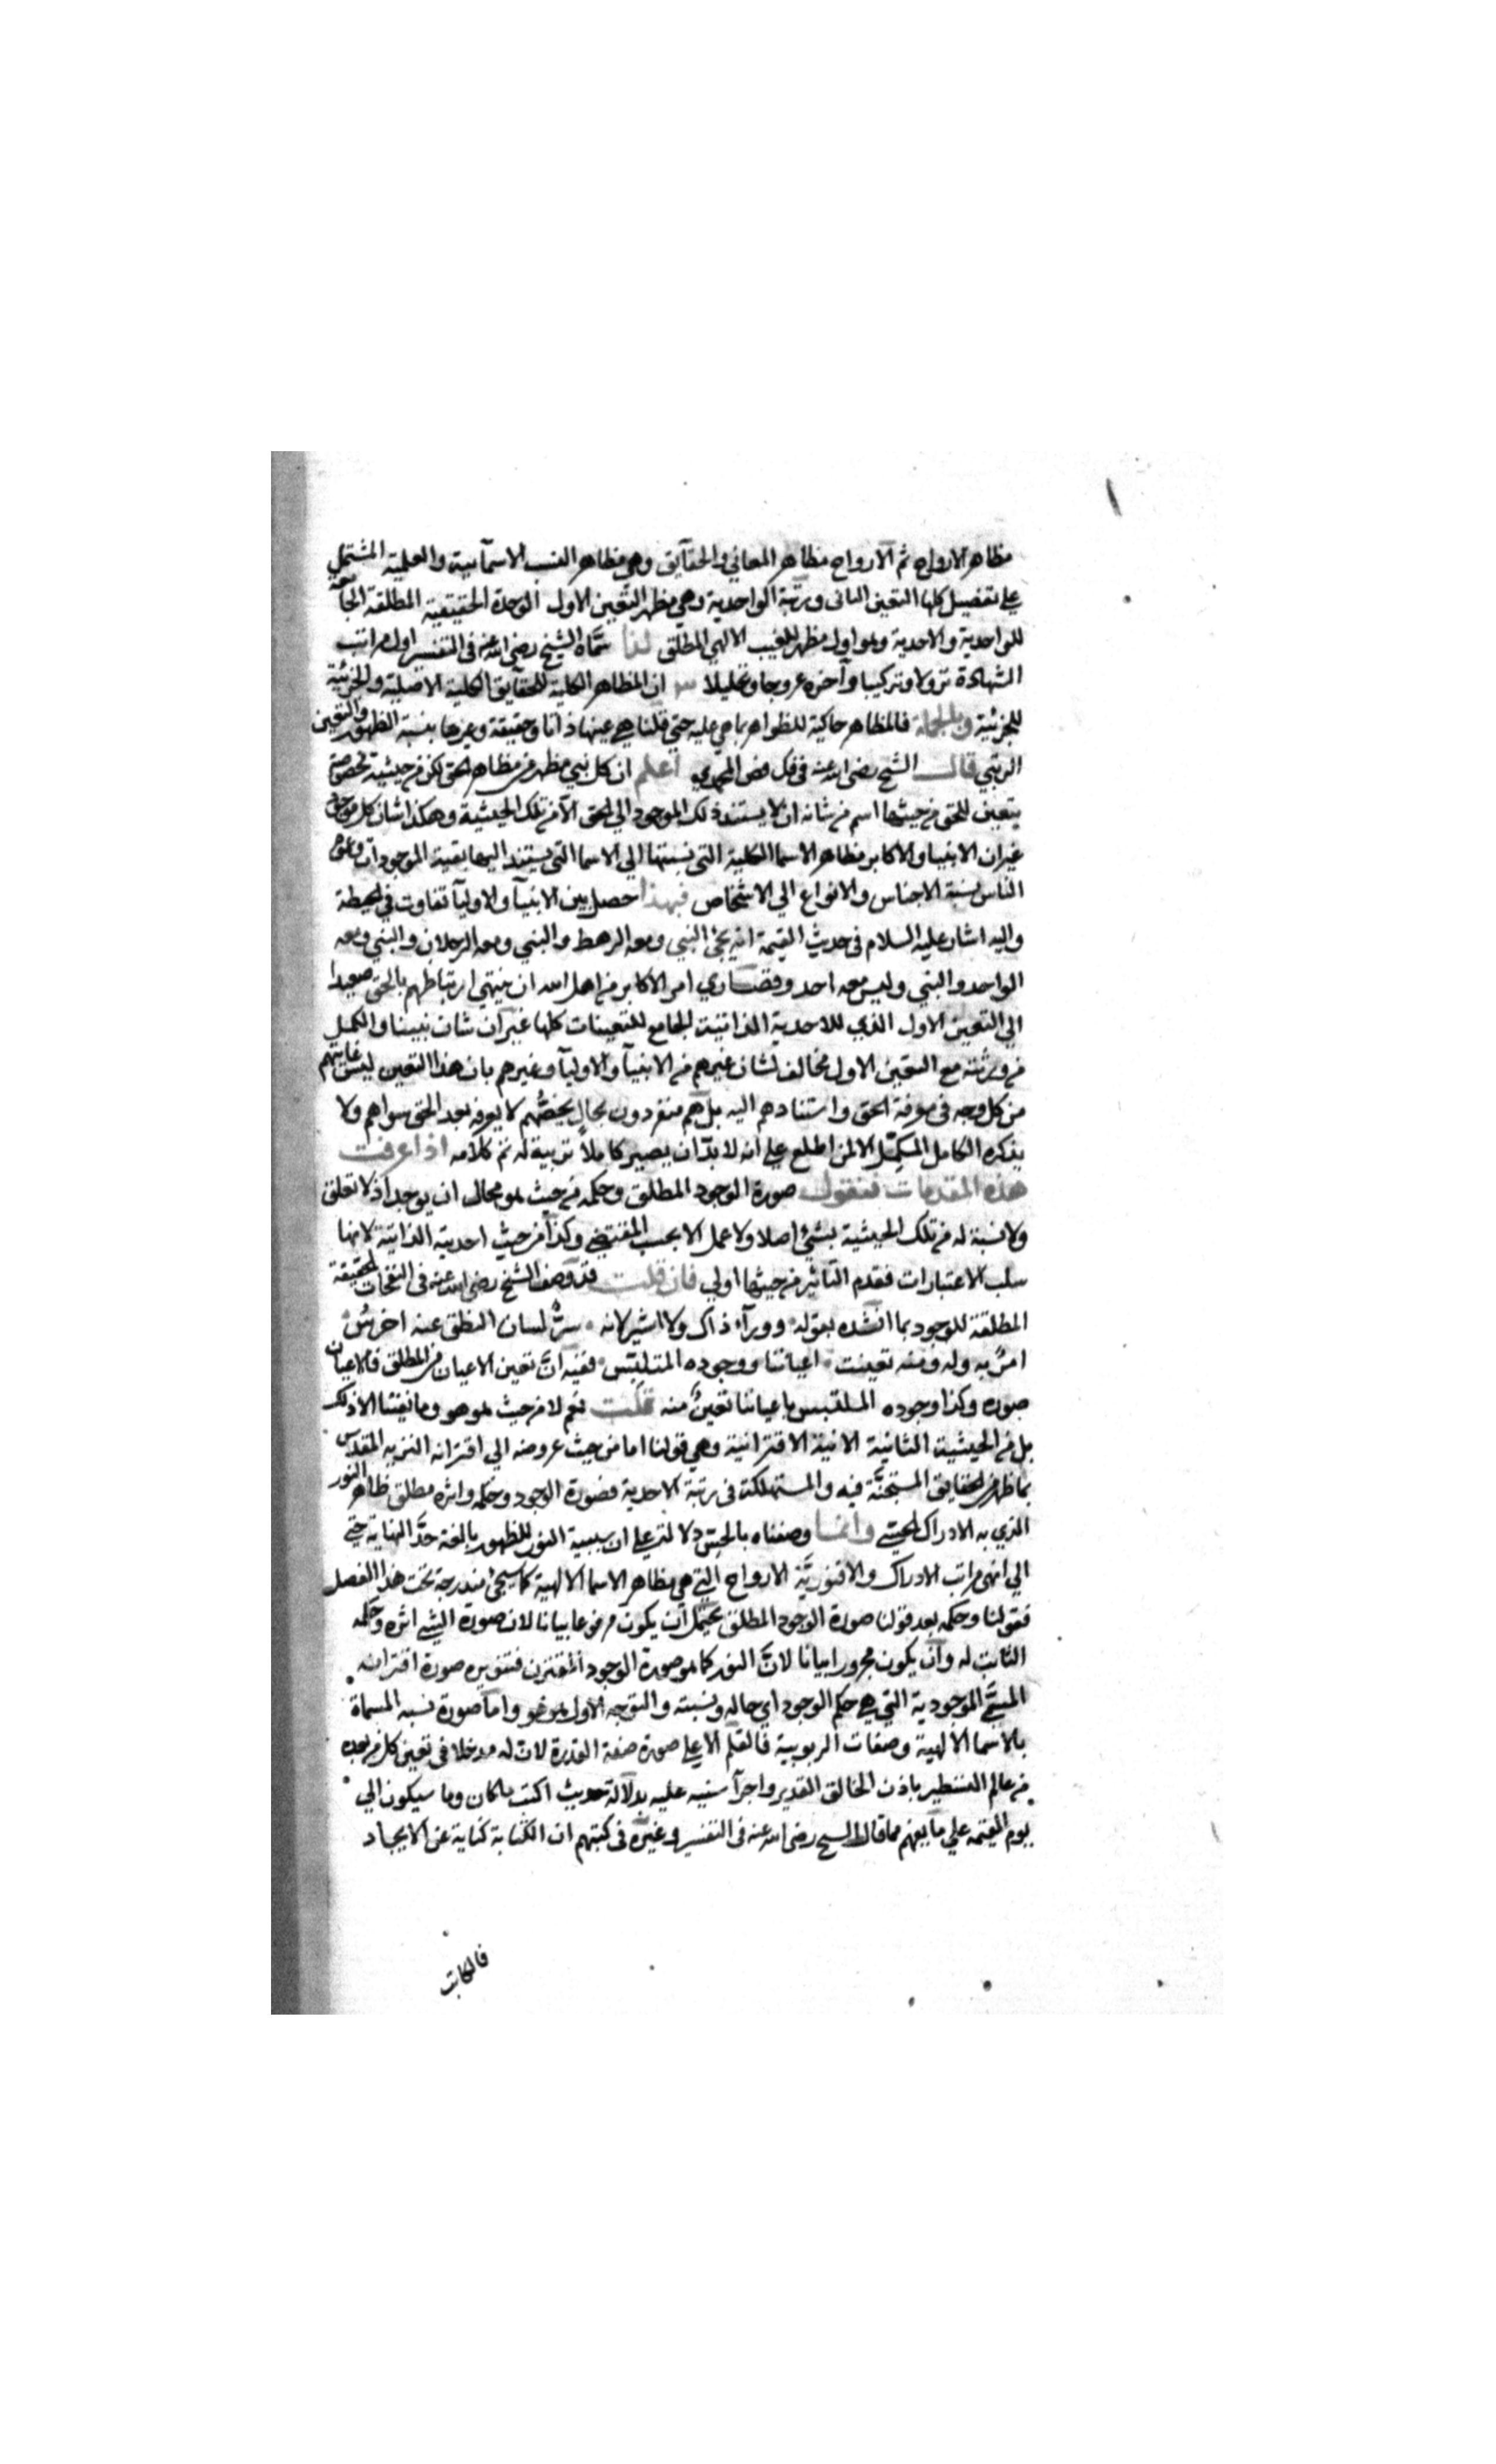 مظاهر الارواح ثم الارواح مظاهر المعاني والحقآيق وهي مظاهر النسب الاسمآئية والعلمية المشتمل
علي تفصيل كلها التعين الثانى ورتبة الواحدية وهي مظهر التعين الاول الوحدة الحقيقية المطلقة الجامعة
للواحدية والاحدية وهو اول مظهر للغيب الالهي المطلق لذا سمّاه الشيخ رضي الله عنه فى التفسير اول مراتب
الشهادة نزولا وتركيبا وآخره عروجا وتحليلا ان المظاهر الكلية للحقآيق الكلية الاصلية والجزئية
للجزئية وبالجملة فالمظاهر حاكية للظواهر بما هي عليه حتي قلنا هي عينها ذاتا وحقيقة وغيرها بنسبة الظهور والتعين
الرتبي قال الشيخ رضي الله عنه في فك فص المحمدي اعلم ان كل نبي مظهر من مظاهر الحق لكن من حيثية مخصوصة
يتعين للحق من حيثها اسم من شانه ان لا يستند ذلك الموجود الي الحق الا من تلك الحيثية وهكذا شان كل موجود
غير ان الانبيا والاكابر مظاهر الاسما الكلية التي نسبتها الي الاسما التي يستند اليها بقية الموجودات وعوام
الناس نسبة الاجناس والانواع الي الاشخاص فبهذا حصل بين الانبيآ والاوليآ تفاوت في الحيطة
واليه اشار عليه السلام فى حديث القيمة انه يجئ النبي ومعه الرهط والنبي ومعه الرجلان والنبي ومعه
الواحد والنبي وليس معه احد وقصاري امر الاكابر من اهل الله ان ينتهي ارتباطهم بالحق صعودا
الي التعين الاول الذي للاحدية الذاتية الجامع للتعينات كلها غير ان شان نبينا والكمل
من ورثته مع التعين الاول مخالف لشان غيرهم من الانبيآ والاوليآ وغيرهم بان هذا التعين ليس غايتهم
من كل وجه فى معرفة الحق واستنادهم اليه بل هم منفردون بحال يخصّهم لا يعرفه بعد الحق سواهم ولا
يذكره الكامل المكمّل الا لمن اطلع علي انه لا بدّ ان يصير كاملاً تربية له تم كلامه اذا عرفت
هذه المقدمات فنقول صورة الوجود المطلق وحكمه من حيث هو محال ان يوجد اذ لا تعلق
ولا نسبة له من تلك الحيثية بشئ اصلا ولا عمل الا بحسب المقتضي وكذا من حيث احديته الذاتية لانها
سلب الاعتبارات فعدم التاثير من حيثها اولي فان قلت قد وصف الشيخ رضي الله عنه فى النفحات الحقيقة
المطلقة للوجود بما انشده بقوله وورآء ذاك ولا اشير لانه سرٌّ لسان النطق عنه اخرسُ
امرٌ به وله ومنه تعينت اعياننا ووجوده المتلبّس ففيه انّ تعين الاعيان من المطلق فالاعيان
صوره وكذا وجوده الملتبس باعياننا تعينٌ منه قلت نعم لا من حيث هو هو وما نفينا الا ذلك
بل من الحيثية الثانية الاقترانية وهي قولنا اما من حيث عروضه الي اقترانه النزيه المقدس
بما ظهر من الحقايق المستجنّة فيه والمستهلكة فى رتبة الاحدية فصورة الوجود وحكمه واثره مطلق ظاهر النور
الذي به الادراك الحسي وانما وصفناه بالحسّ دلالة علي ان سببية النور للظهور بالغة حدّ النهاية حتي
الي انهي مراتب الادراك والا فنوريّة الارواح التي هي مظاهر الاسما الالهية كما سيجئ مندرجة تحت هذا الفصل
فقولنا وحكمه بعد قولنا صورة الوجود المطلق يحتمل ان يكون مرفوعا بيانا لان صورة الشي اثره وحكمه
الثابت له وان يكون مجرورا بيانا لانّ النور كما هو صورة الوجود المقترن فتنويره صورة اقترانه
المسمّي الموجودية التي هي حكم الوجود اي حاله ونسبته والتوجيه الاول هو هو واما صورة نسبه المسماة
بالاسما الالهية وصفات الربوبية فالقلم الاعلي صورة صفة القدرة لانّ له مدخلا فى تعين كل من بعده
من عالم التسطير باذن الخالق القدير واجرآ سنته عليه بدلالة حديث اكتب ما كان وما سيكون الي
يوم القيمة علي ما يفهم مما قال الشيخ رضي الله عنه فى التفسير وغيره فى كتبهم ان الكتابة كناية عن الايجاد
فالكاتب